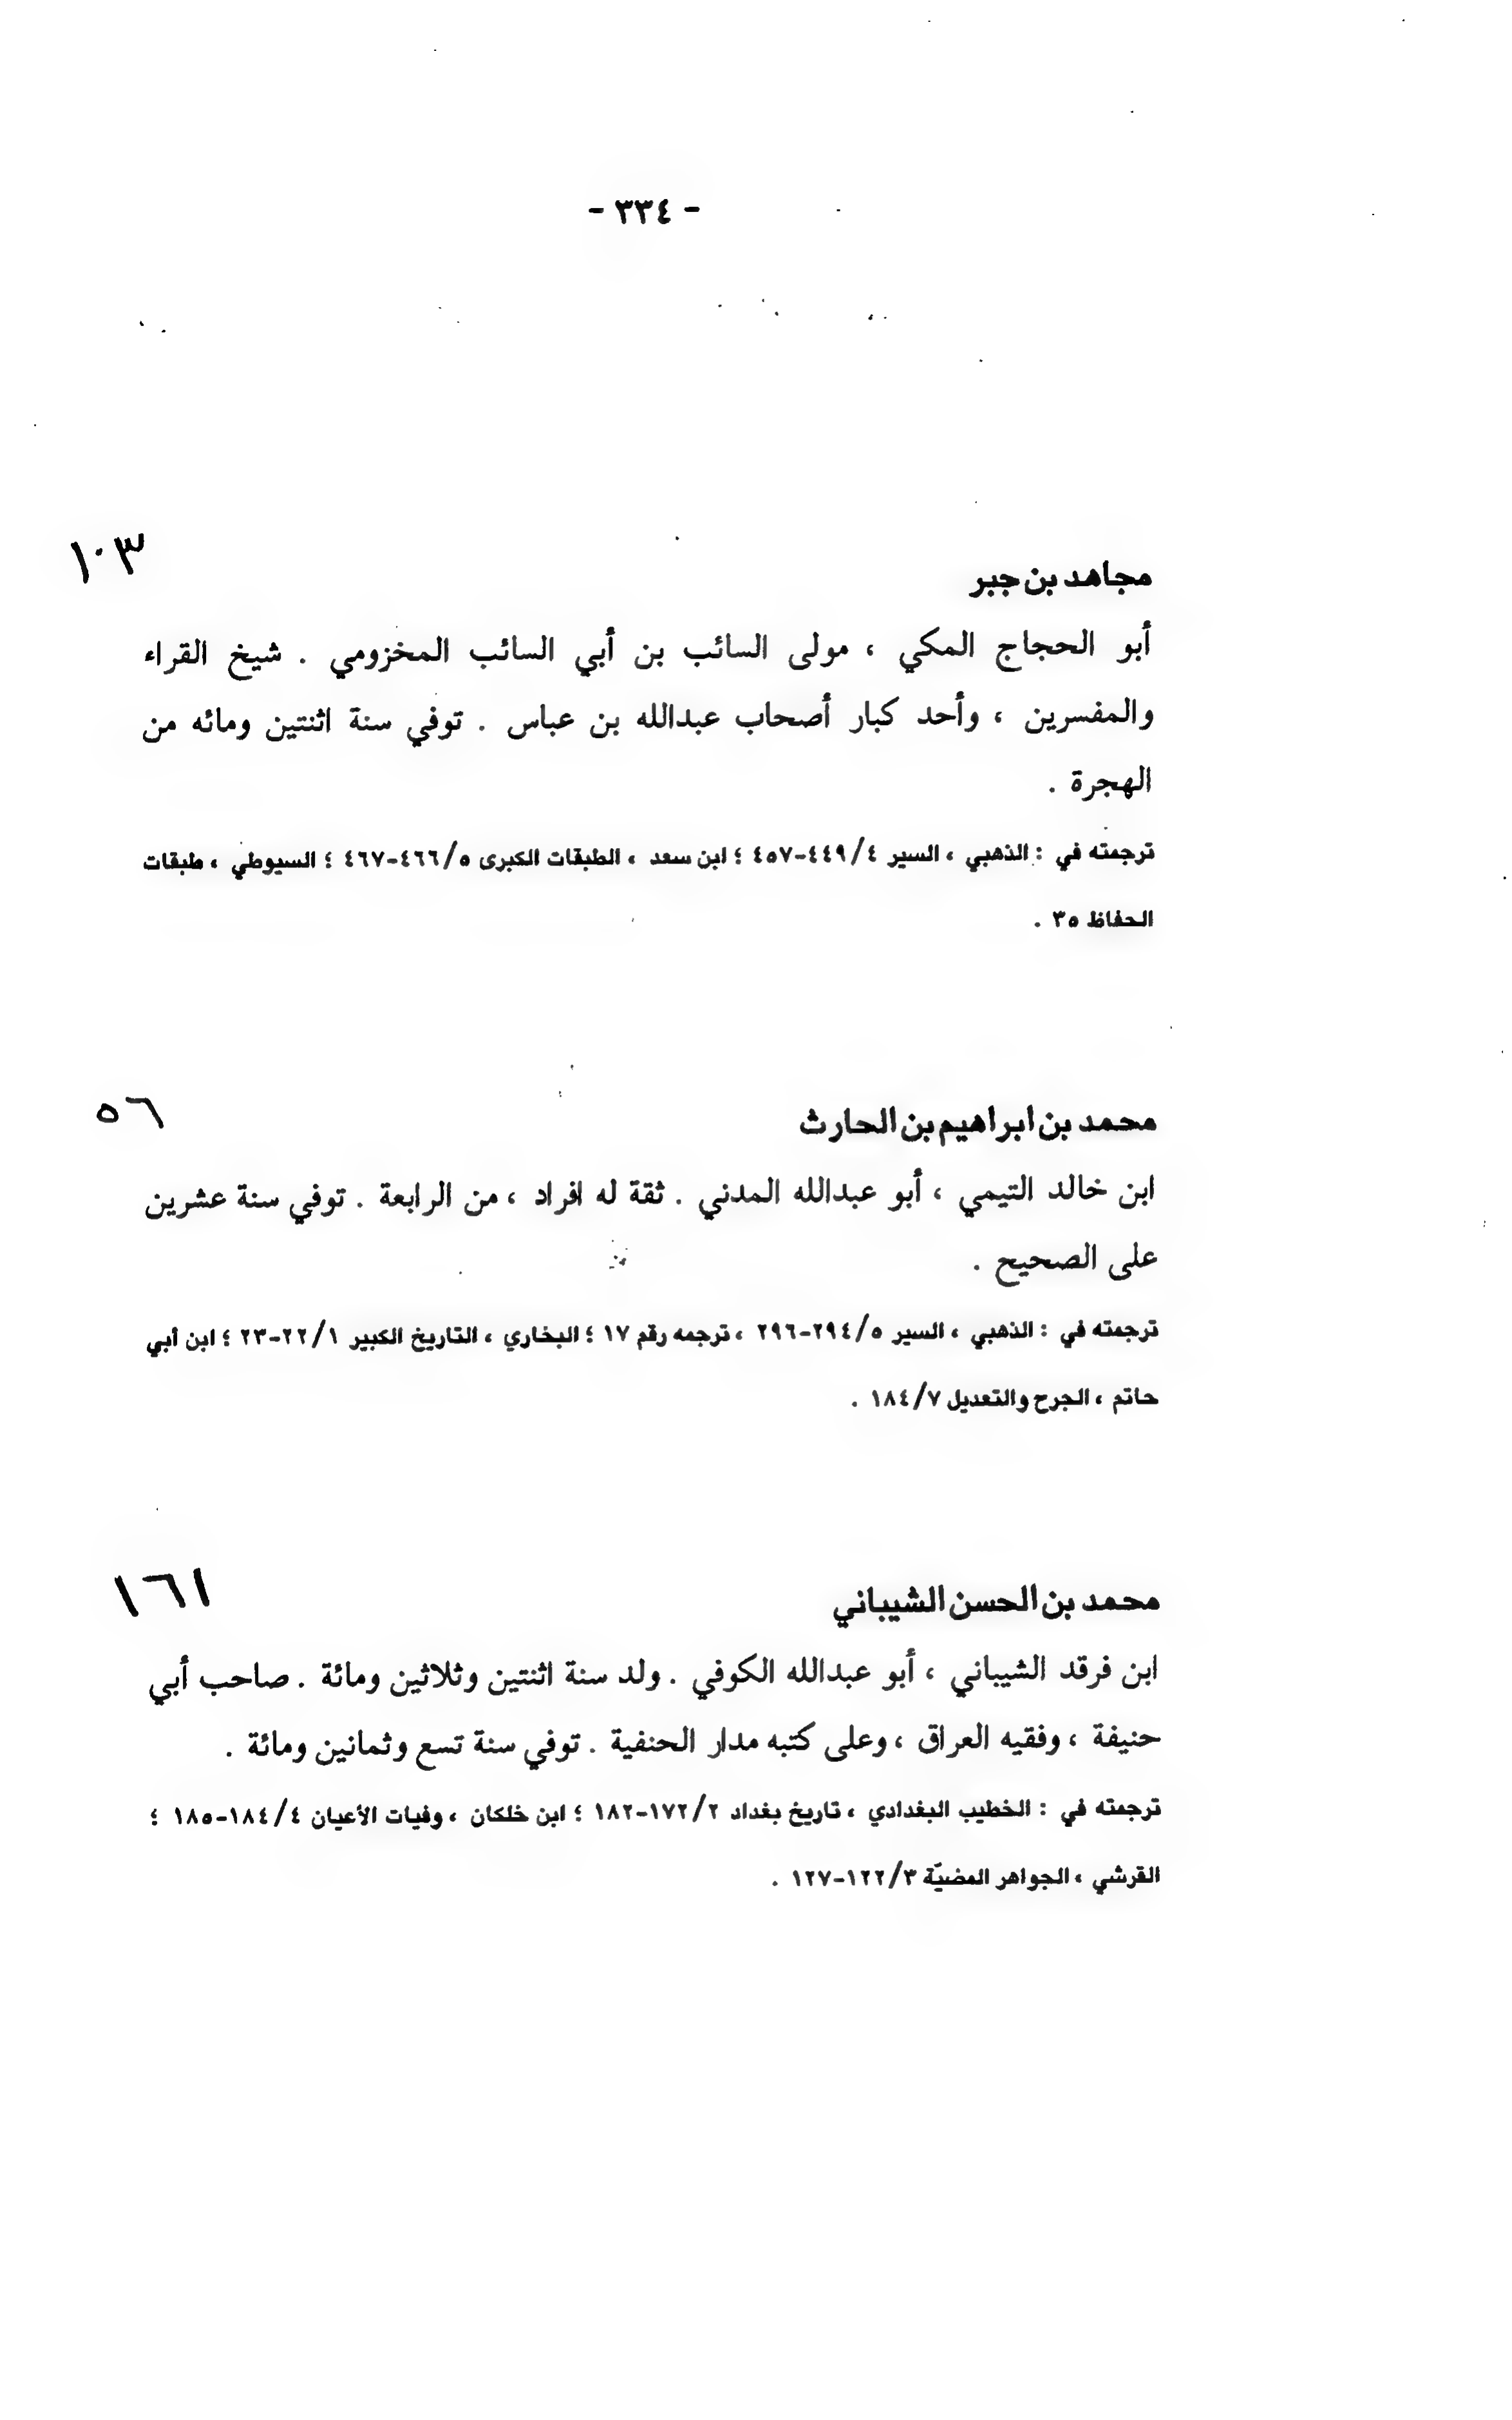 - ٣٣٤ -
١٠٣
مجاهد بن جبر
أبو الحجاج المكي ، مولى السائب بن أبي السائب المخزومي . شيخ القراء
والمفسرين ، وأحد كبار أصحاب عبدالله بن عباس . توفي سنة اثنتين ومائه من
الهجرة .
ترجمته في : الذهبي ، السير ٤/٤٤٩-٤٥٧ ؛ ابن سعد ، الطبقات الكبرى ٥/٤٦٦-٤٦٧ ؛ السيوطي ، طبقات
الحفاظ ٣٥ .
٥٦
محمد بن ابراهيم بن الحارث
ابن خالد التيمي ، أبو عبدالله المدني . ثقة له افراد ، من الرابعة . توفي سنة عشرين
على الصحيح .
ترجمته في : الذهبي ، السير ٥/٢٩٤-٢٩٦ ، ترجمه رقم ١٧ ؛ البخاري ، التاريخ الكبير ١/٢٢-٢٣ ؛ ابن أبي
حاتم ، الجرح والتعديل ٧/١٨٤ .
١٦١
محمد بن الحسن الشيباني
ابن فرقد الشيباني ، أبو عبدالله الكوفي . ولد سنة اثنتين وثلاثين ومائة . صاحب أبي
حنيفة ، وفقيه العراق ، وعلى كتبه مدار الحنفية . توفي سنة تسع وثمانين ومائة .
ترجمته في : الخطيب البغدادي ، تاريخ بغداد ٢/١٧٢-١٨٢ ؛ ابن خلكان ، وفيات الأعيان ٤/١٨٤-١٨٥ ؛
القرشي ، الجواهر المضيّة ٣/١٢٢-١٢٧ .